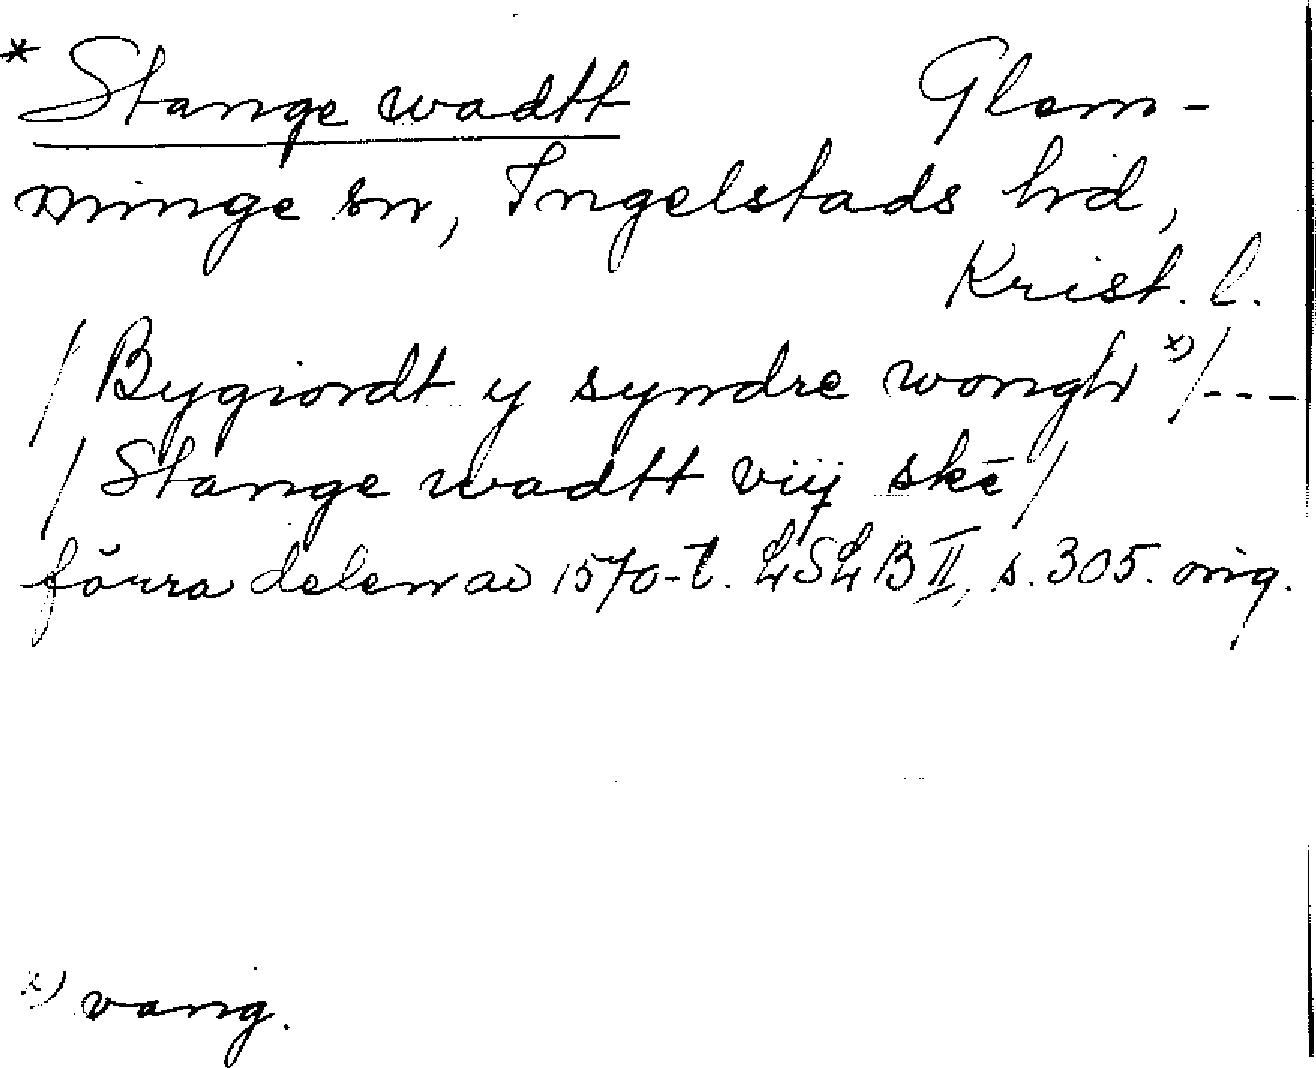 * Stange wadtt Glem-
minge sn, Ingelstads hd,
Krist. l.
/ Bygiordt y syndre wongh x) / ---
/ Stange wadtt viij skē /
förra delen av 1570-t. LSLB II, s. 305. orig.
x) vang.